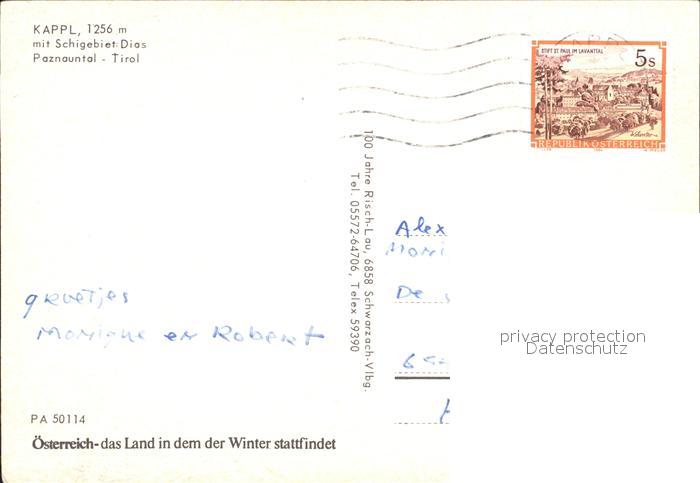 KAPPL, 1256 m
mit Schigebiet Dias
Paznauntal - Tirol
STIFT ST. PAUL IM LAVANTTAL
5 S
REPUBLIK ÖSTERREICH
100 Jahre Risch-Lau, 6858 Schwarzach-Vlbg.
Tel. 05572-64706, Telex 59390
Alex
Moni
De
groetjes
Monique en Robert
privacy protection
Datenschutz
PA 50114
Österreich - das Land in dem der Winter stattfindet